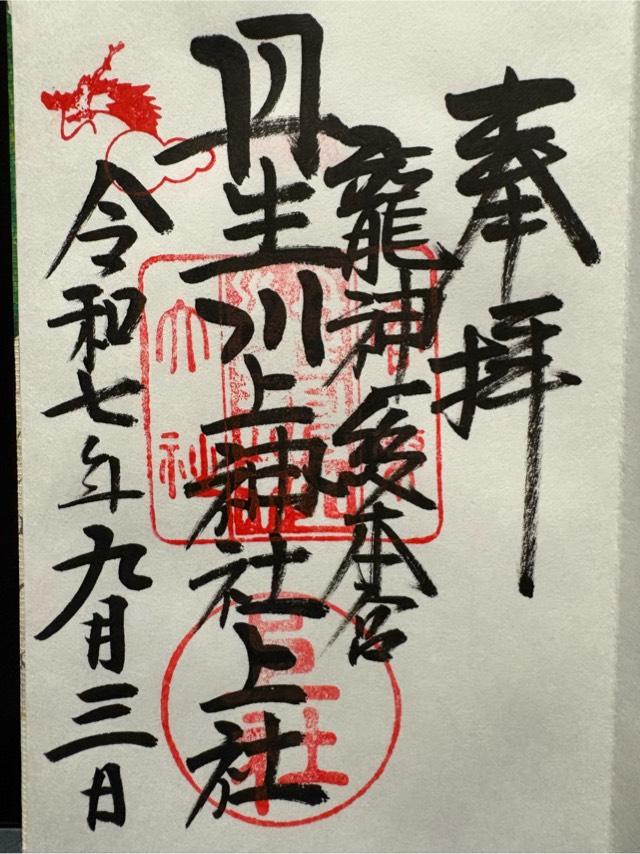 奉拝
龍神総本宮
丹生川上神社上社
令和七年九月三日
上社